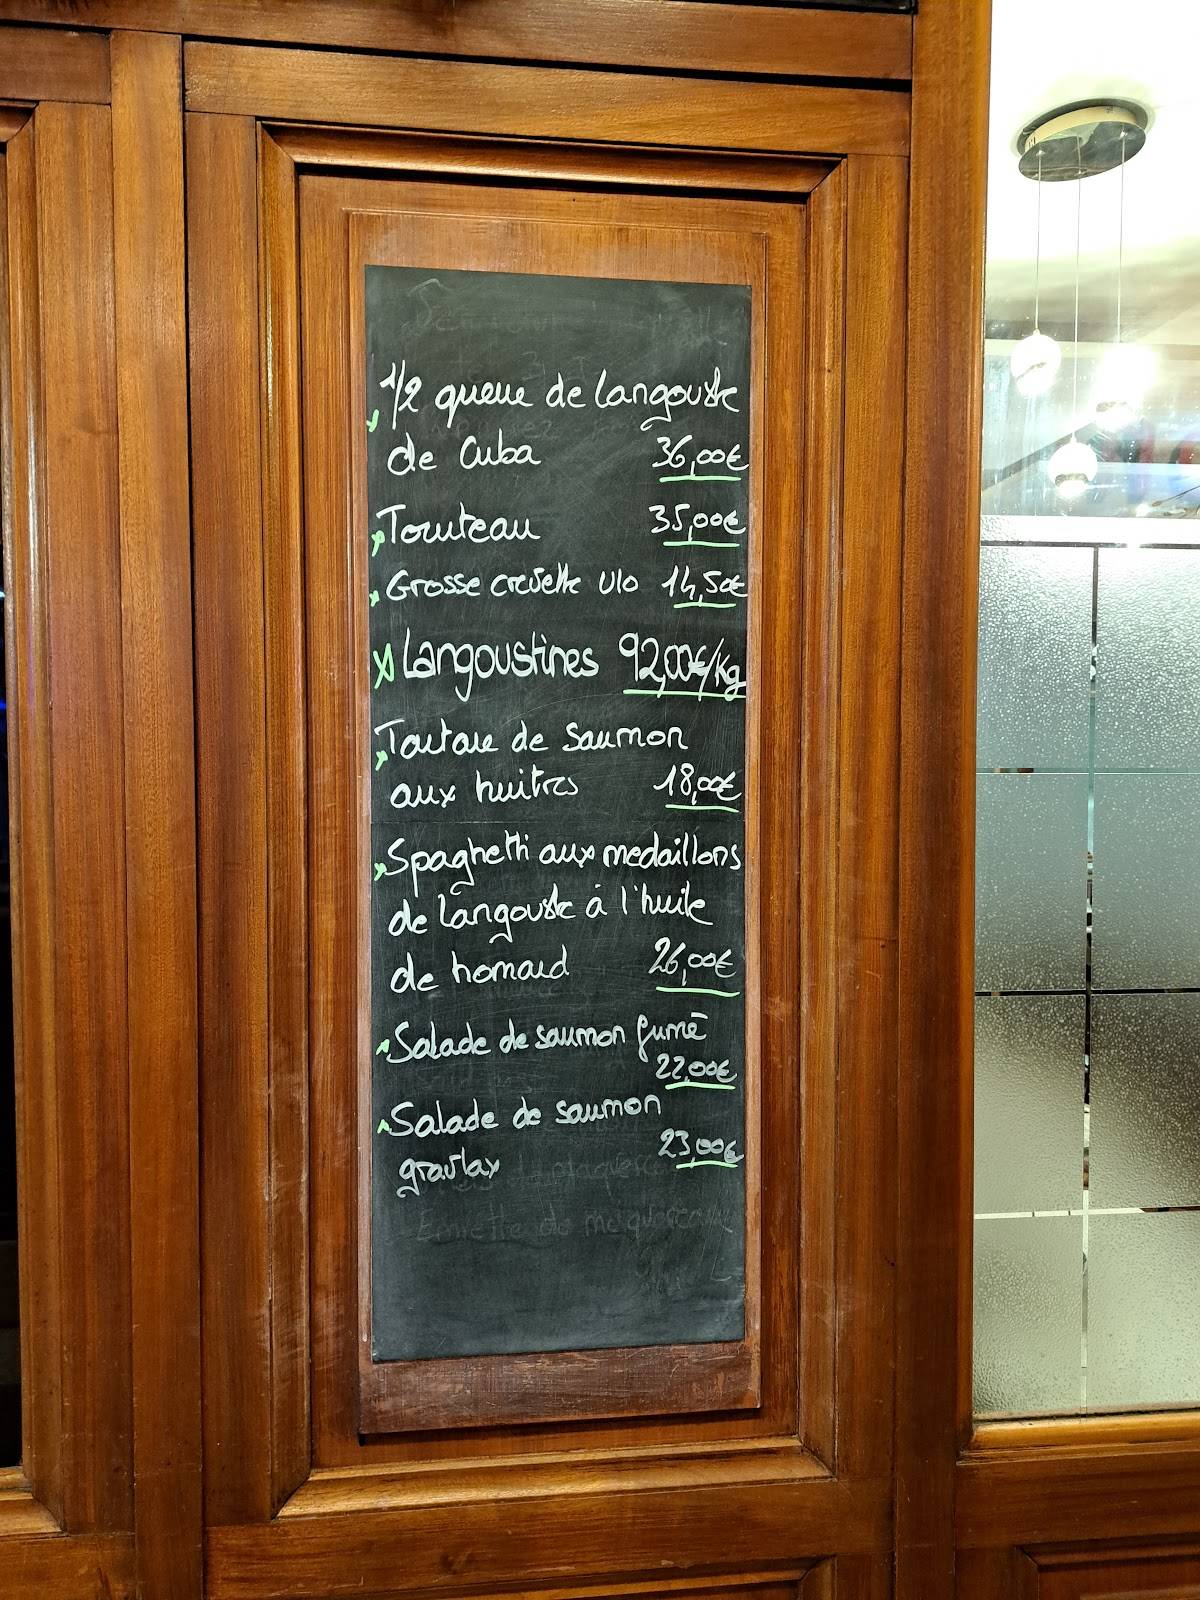 1/2 queue de langouste
de Cuba 36,00€
Tourteau 35,00€
Grosse crevette U10 14,50€
Langoustines 92,00€/Kg
Tartare de saumon
aux huitres 18,00€
Spaghetti aux medaillons
de langouste à l'huile
de homard 26,00€
Salade de saumon fumé
22,00€
Salade de saumon
gravlax 23,00€
Emietté de maquereaux